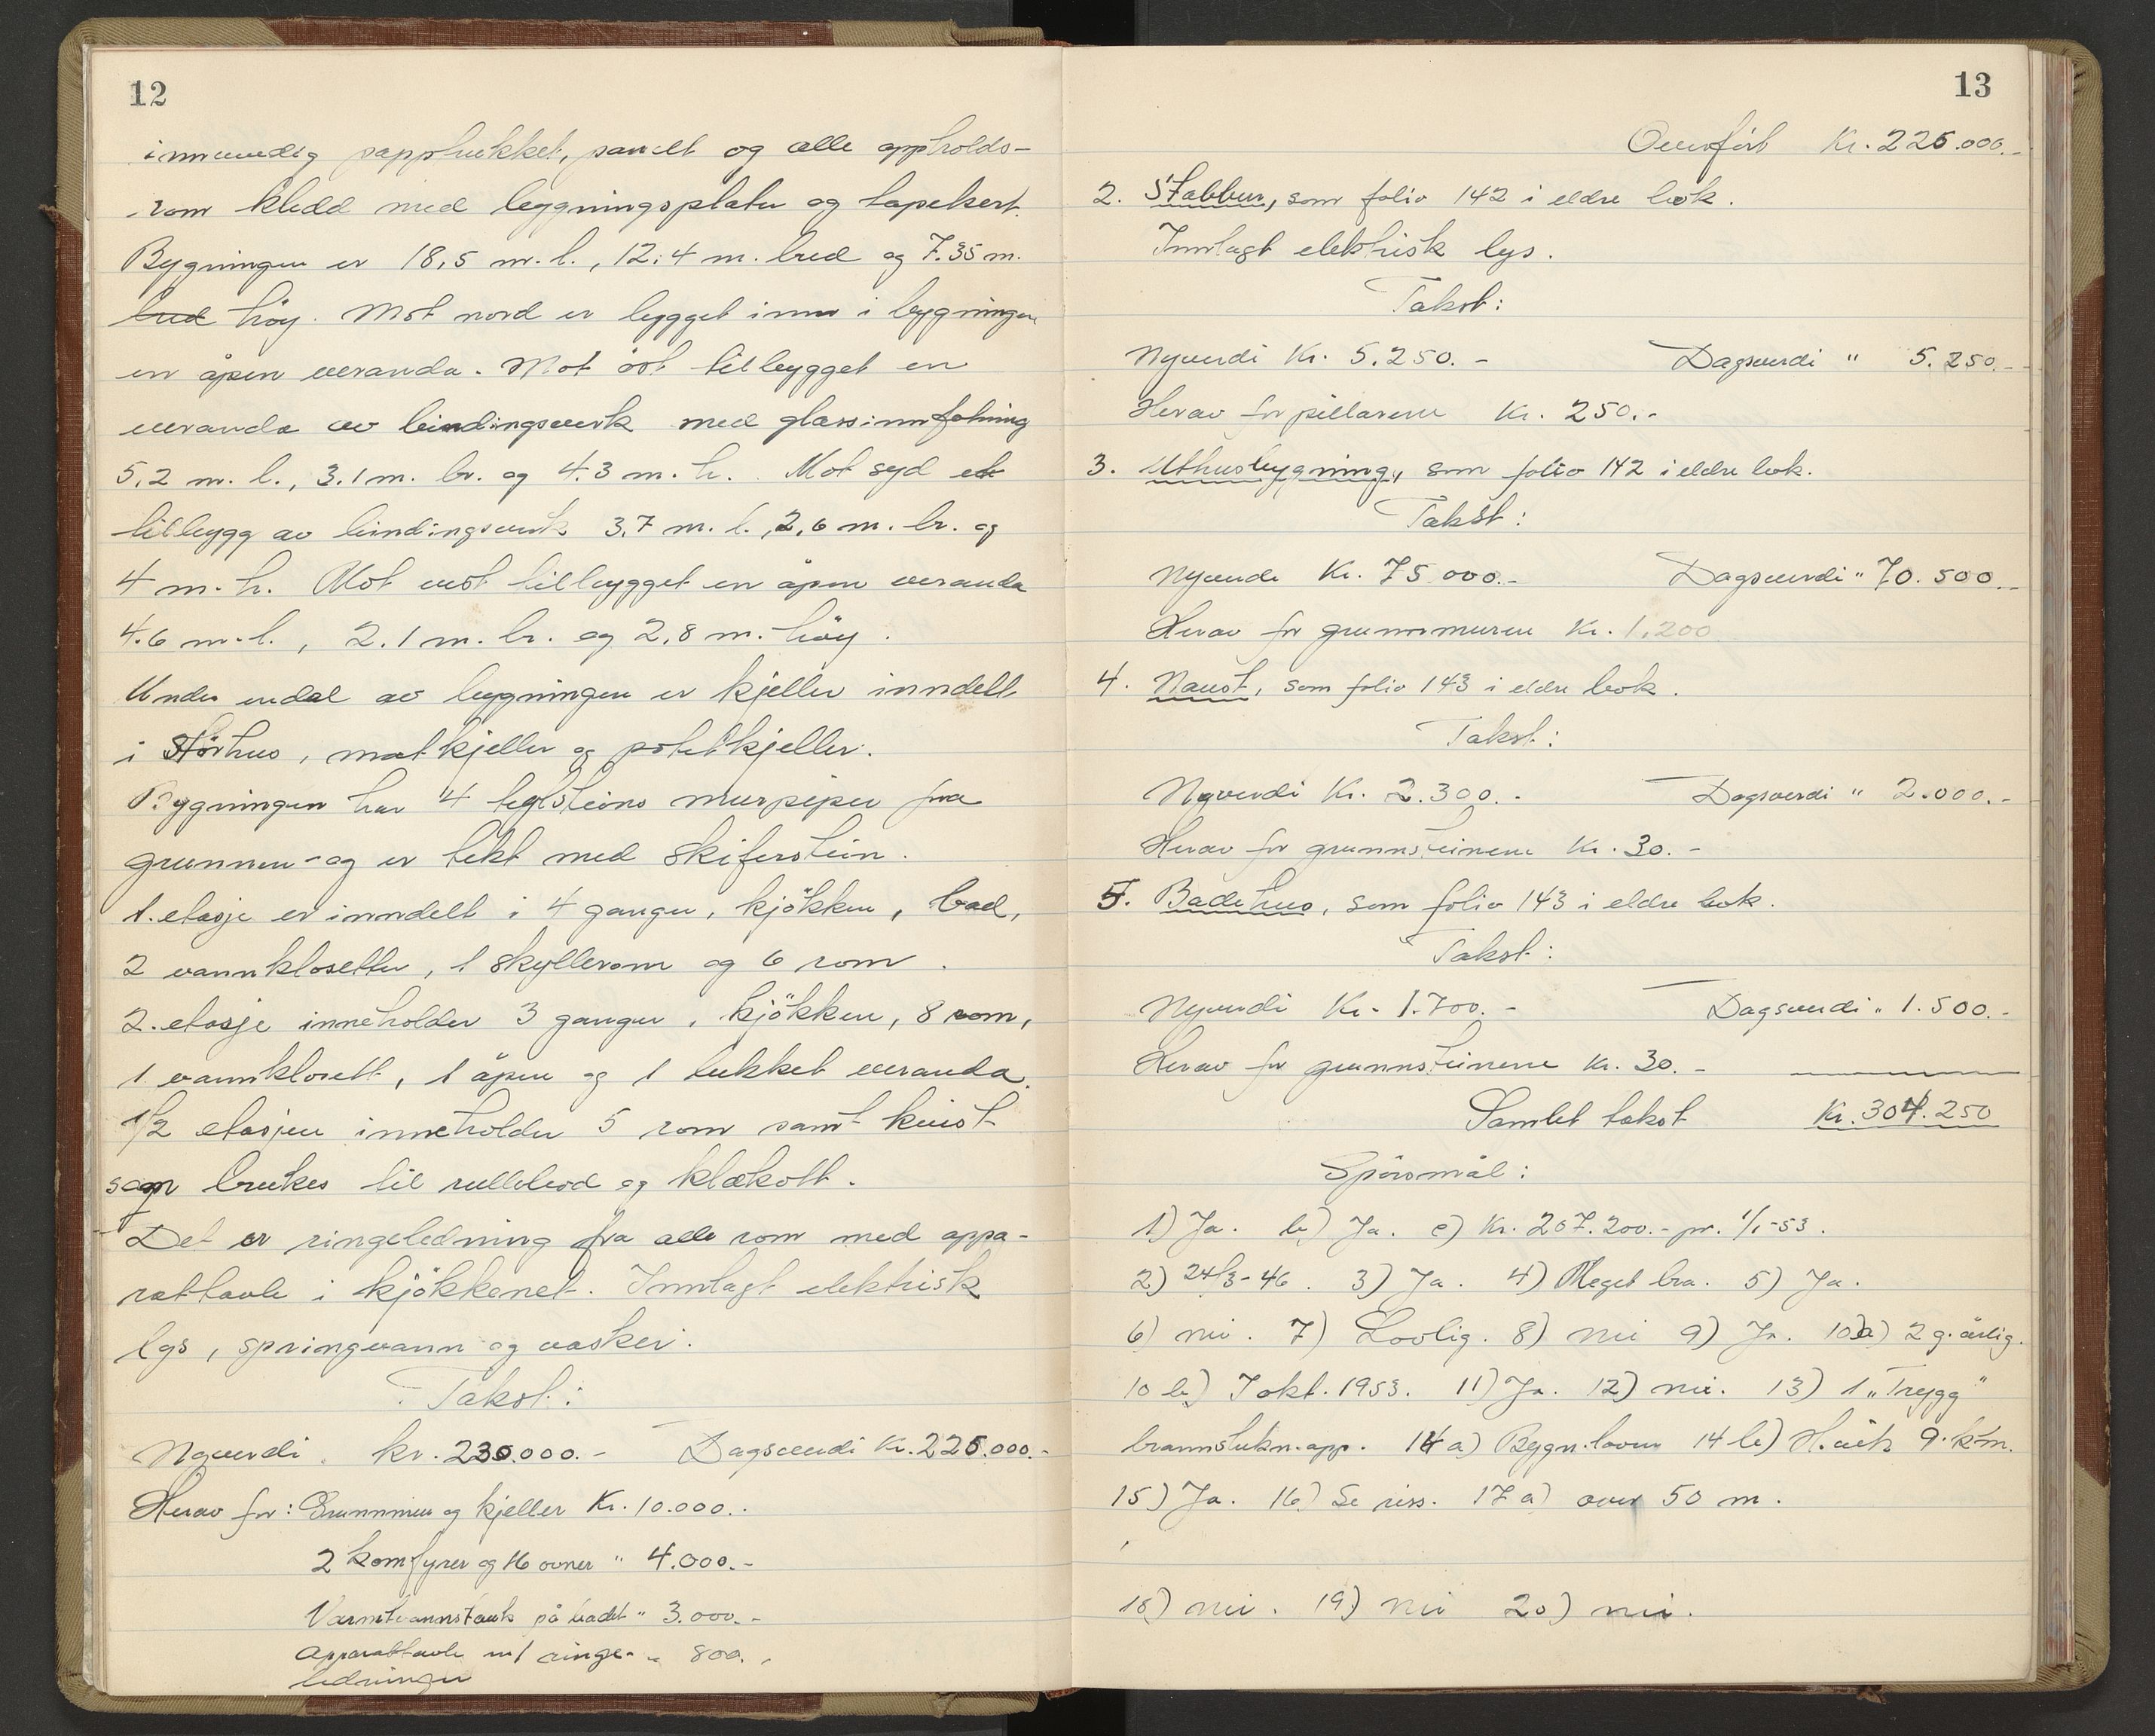 12
innvendig papptrukket, panelt og alle oppholds-
rom kledd med byggningsplater og tapetsert.
Bygningen er 18,5 m. l., 12.4 m. bred og 7.35 m.
bred høy. Mot nord er bygget inn i bygningen
en åpen veranda. Mot öst tilbygget en
veranda av bindingsverk med glassinnfatning
5,2 m. l., 3.1 m. br. og 4.3 m. h. Mot syd et
tilbygg av bindingsverk 3,7 m. l. 2,6 m. br. og
4 m. h. Mot vest tilbygget en åpen veranda
4.6 m. l., 2.1 m. br. og 2,8 m. höy.
Under endel av bygningen er kjeller inndelt
i störhus, matkjeller og potetkjeller.
Bygningen har 4 teglsteins murpiper fra
grunnen - og er tekt med skiferstein.
1. etasje er inndelt i 4 ganger, kjökken, bad,
2 vannklosetter, 1 skyllerom og 6 rom.
2. etasje inneholder 3 ganger, kjökken, 8 rom,
1 vannklosett, 1 åpen og 1 lukket veranda.
1/2 etasjen inneholder 5 rom samt kvist
som brukes til rullebod og klækott.
Det er ringeledning fra alle rom med appa-
rattavle i kjökkenet. Innlagt elektrisk
lys, springvann og vasker.
Takst:
Nyverdi kr. 230.000.- Dagsverdi Kr. 225.000.-
Herav for: Grunnmur og kjeller Kr. 10.000.-
2 komfyrer og 16 ovner " 4.000.-
Varmtvannstank på badet " 3.000.-
Apparattavle m/ ringe- " 800.-
ledninger
13
Overfört Kr. 225.000.-
2. Stabbur, som folio 142 i eldre bok.
Innlagt elektrisk lys.
Takst:
Nyverdi Kr. 5.250.- Dagsverdi " 5.250.-
Herav for pillarene Kr. 250.-
3. Uthusbygning, som folio 142 i eldre bok.
Takst:
Nyverdi Kr. 75.000.- Dagsverdi " 70.500.-
Herav for grunnmuren Kr. 1.200
4. Naust, som folio 143 i eldre bok.
Takst:
Nyverdi Kr. 2.300.- Dagsverdi " 2.000.-
Herav for grunnsteinene Kr. 30.-
5. Badehus, som folio 143 i eldre bok.
Takst:
Nyverdi Kr. 1.700.- Dagsverdi " 1.500.-
Herav for grunnsteinene Kr. 30.-
Samlet takst Kr. 304.250
Spörsmål:
1) Ja. b) Ja. c) Kr. 207.200.- pr. 1/1-53.
2) 24/3-46. 3) Ja. 4) Meget bra. 5) Ja.
6) nei. 7) Lovlig. 8) nei 9) Ja. 10 a) 2 g. årlig.
10 b) I okt. 1953. 11) Ja. 12) nei. 13) 1 „Trygg"
brannslukn.app. 14 a) Bygn.loven 14 b) 9. km.
15) Ja. 16) Se riss. 17 a) over 50 m.
18) nei. 19) nei 20) nei.